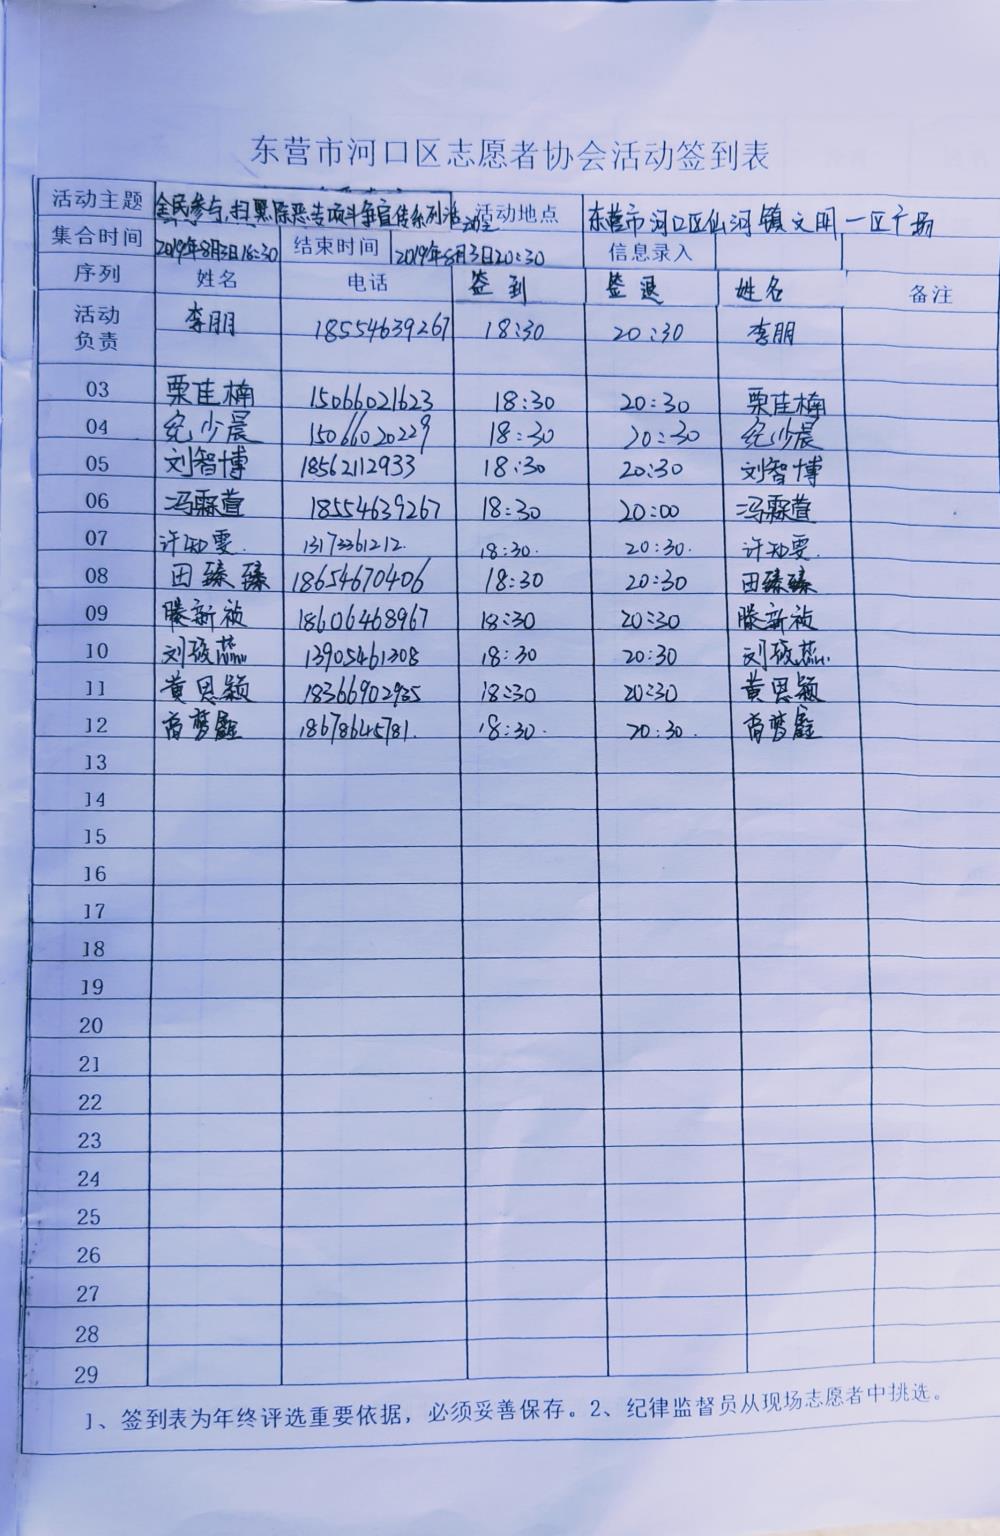 东营市河口区志愿者协会活动签到表
活动主题 全民参与,扫黑除恶专项斗争宣传系列活动 活动地点 东营市河口区仙河镇文明一区广场
集合时间 2019年8月3日18:30 结束时间 2019年8月3日20:30 信息录入
序列 姓名 电话 签到 签退 姓名 备注
活动负责 李朋 18554639267 18:30 20:30 李朋
03 栗佳楠 15066021623 18:30 20:30 栗佳楠
04 纪少晨 15066020229 18:30 20:30 纪少晨
05 刘智博 18562112933 18:30 20:30 刘智博
06 冯霖萱 18554639267 18:30 20:00 冯霖萱
07 许知雯 13173361212. 18:30. 20:30. 许知雯.
08 田臻臻 18654670406 18:30 20:30 田臻臻
09 滕新祯 18606468967 18:30 20:30 滕新祯
10 刘 13905461308 18:30 20:30 刘
11 黄思颖 18366902935 18:30 20:30 黄思颖
12 商梦鑫 18678645781. 18:30. 20:30. 商梦鑫
13
14
15
16
17
18
19
20
21
22
23
24
25
26
27
28
29
1、签到表为年终评选重要依据，必须妥善保存。2、纪律监督员从现场志愿者中挑选。